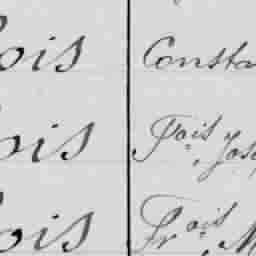 ois Consta
ois Fois, Jos
ois Frois, M